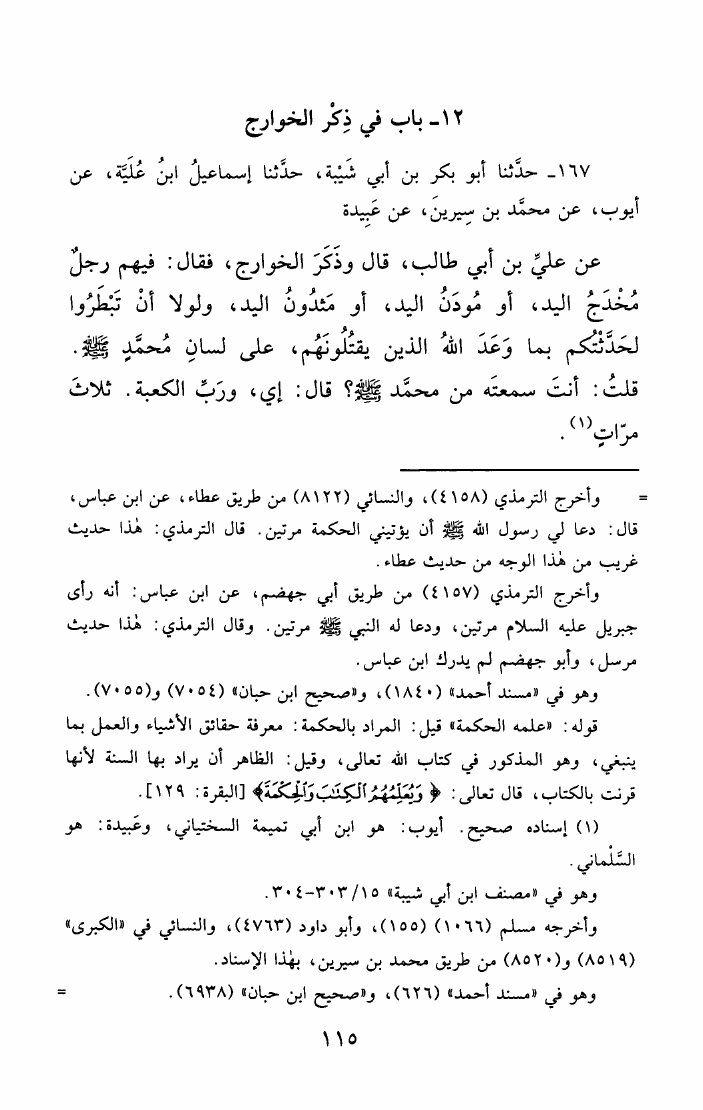 ١٢- باب في ذِكْر الخوارج
١٦٧- حدَّثنا أبو بكر بن أبي شَيْبة، حدَّثنا إسماعيلُ ابنُ عُلَيَّة، عن
أيوب، عن محمَّد بن سِيرينَ، عن عَبِيدة
عن عليِّ بن أبي طالب، قال وذَكَرَ الخوارج، فقال: فيهم رجلٌ
مُخْدَجُ اليد، أو مُودَنُ اليد، أو مَثدُونُ اليد، ولولا أنْ تَبْطَرُوا
لحَدَّثْتُكم بما وَعَدَ اللهُ الذين يقتُلُونَهُم، على لسانِ مُحمَّدٍ ﷺ.
قلتُ: أنتَ سمعتَه من محمَّد ﷺ؟ قال: إي، وربِّ الكعبة. ثلاثَ
مرّاتٍ(١).
= وأخرج الترمذي (٤١٥٨)، والنسائي (٨١٢٢) من طريق عطاء، عن ابن عباس،
قال: دعا لي رسول الله ﷺ أن يؤتيني الحكمة مرتين. قال الترمذي: هٰذا حديث
غريب من هٰذا الوجه من حديث عطاء.
وأخرج الترمذي (٤١٥٧) من طريق أبي جهضم، عن ابن عباس: أنه رأى
جبريل عليه السلام مرتين، ودعا له النبي ﷺ مرتين. وقال الترمذي: هٰذا حديث
مرسل، وأبو جهضم لم يدرك ابن عباس.
وهو في «مسند أحمد» (١٨٤٠)، و«صحيح ابن حبان» (٧٠٥٤) و(٧٠٥٥).
قوله: «علمه الحكمة» قيل: المراد بالحكمة: معرفة حقائق الأشياء والعمل بما
ينبغي، وهو المذكور في كتاب الله تعالى، وقيل: الظاهر أن يراد بها السنة لأنها
قرنت بالكتاب، قال تعالى: ﴿وَيُعَلِّمُهُمُ ٱلْكِتَٰبَ وَٱلْحِكْمَةَ﴾ [البقرة: ١٢٩].
(١) إسناده صحيح. أيوب: هو ابن أبي تميمة السختياني، وعَبيدة: هو
السَّلْماني.
وهو في «مصنف ابن أبي شيبة» ١٥/٣٠٣-٣٠٤.
وأخرجه مسلم (١٠٦٦) (١٥٥)، وأبو داود (٤٧٦٣)، والنسائي في «الكبرى»
(٨٥١٩) و(٨٥٢٠) من طريق محمد بن سيرين، بهٰذا الإسناد.
وهو في «مسند أحمد» (٦٢٦)، و«صحيح ابن حبان» (٦٩٣٨). =
١١٥